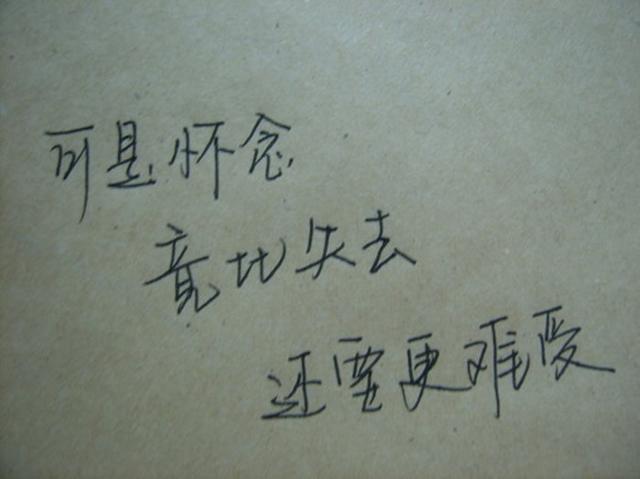 可是怀念
竟比失去
还要更难受